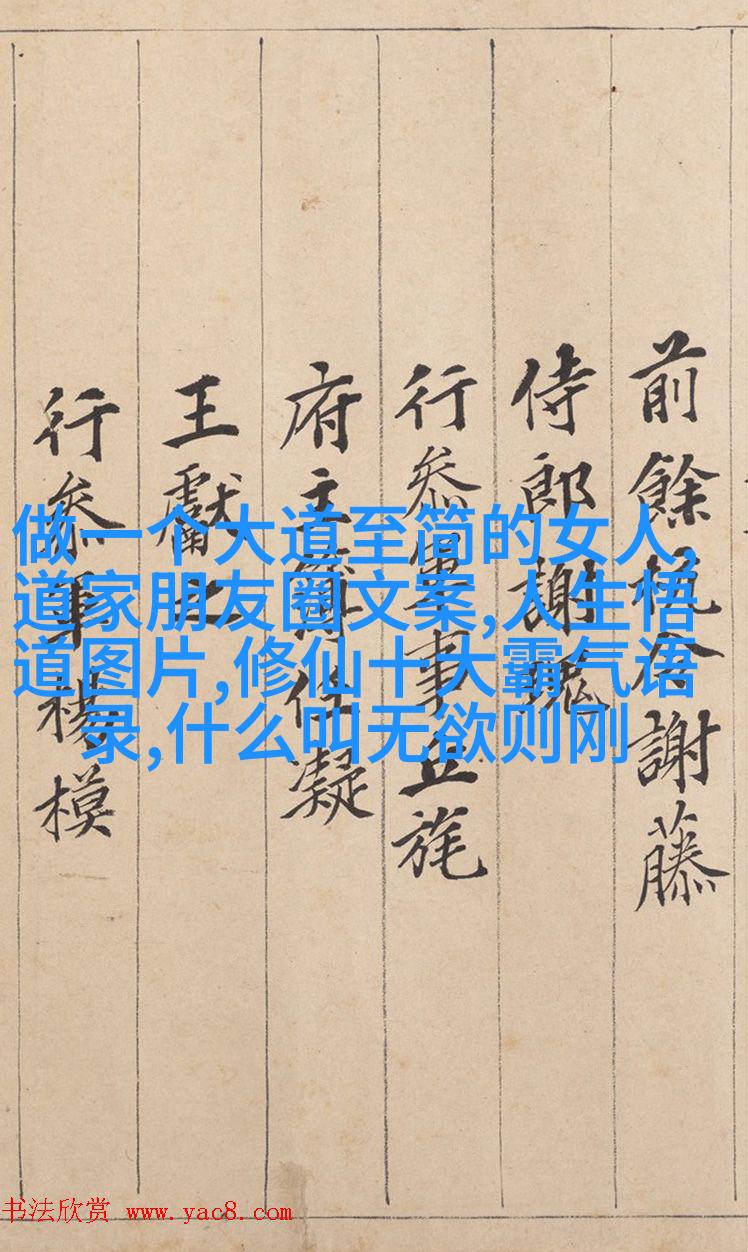 前餘杭令謝藤
侍郎謝瑰
行叅軍事丘旄
府主簿任凝
王獻之
行叅軍楊模
做一个大道至简的女人,
道家朋友圈文案,人生悟
道图片,修仙十大霸气语
录,什么叫无欲则刚
书法欣赏 www.yac8.com